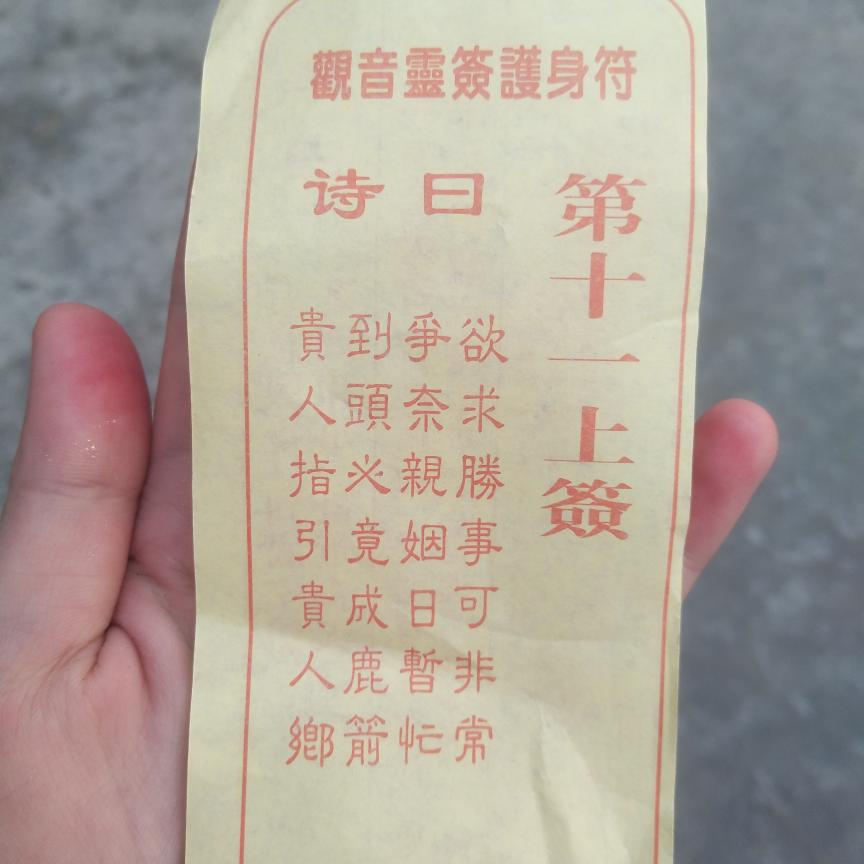 觀音靈簽護身符
第十一上簽
诗曰
欲求勝事可非常
爭奈親姻日暫忙
到頭必竟成鹿箭
貴人指引貴人鄉